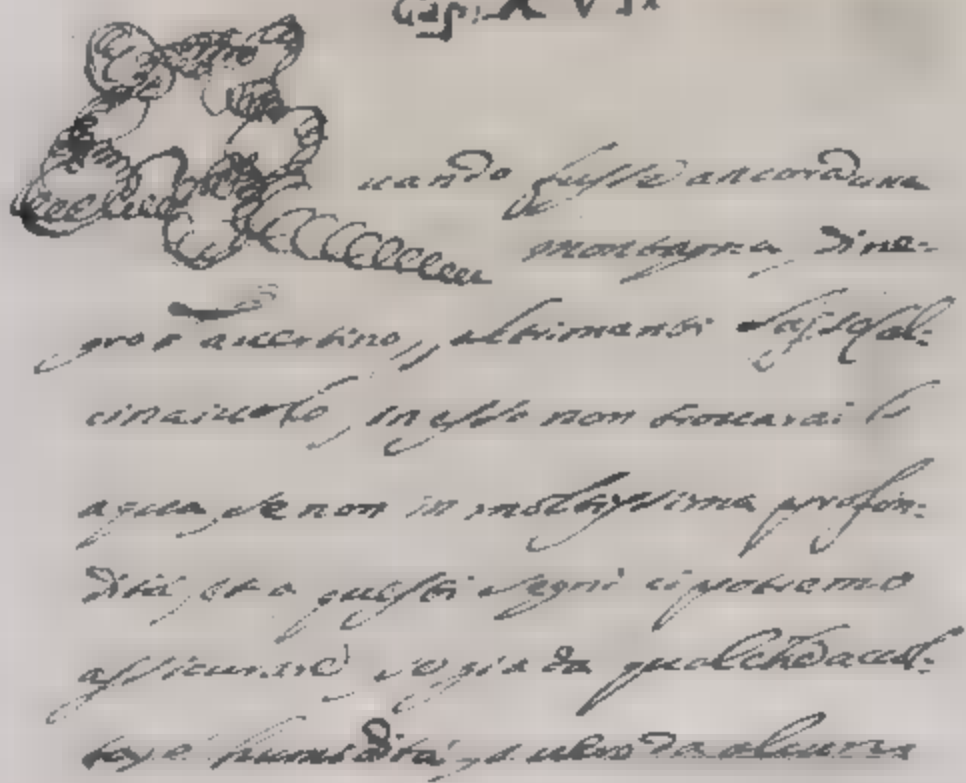 Cap: X V I
uando fusse ancora una
montagna di ne-
gro e accertino, altrimenti sasso cal-
cinaiuolo, in esso non trovarai l'
aqua, se non in moltissima profon-
dità, et a questi segni ci potremo
assicurare, se sia da qualche
humidità, da alcuna